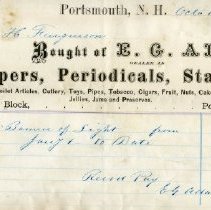 Portsmouth, N. H. Octo
H. Ferguson
Bought of E. G. A
DEALER IN
pers, Periodicals, Sta
oilet Articles, Cutlery, Toys, Pipes, Tobacco, Cigars, Fruit, Nuts, Cake
Jellies, Jams and Preserves.
Block, Po
of Light from
Jany 1 to Date
Recd Pay
E G Ada